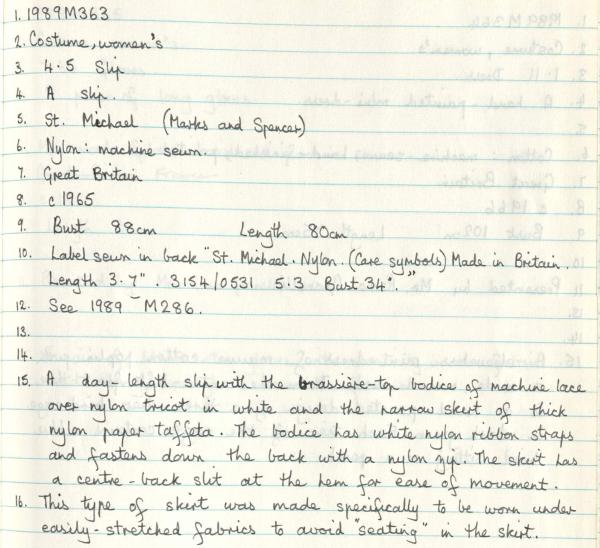 1. 1989M363
2. Costume, women's
3. 4.5 Slip
4. A slip.
5. St. Michael (Marks and Spencer)
6. Nylon: machine sewn.
7. Great Britain
8. c 1965
9. Bust 88cm Length 80cm
10. Label sewn in back "St. Michael. Nylon. (Care symbols) Made in Britain.
Length 3.7". 3154/0531 5.3 Bust 34"."
12. See 1989 M286.
13.
14.
15. A day-length slip with the brassière-top bodice of machine lace
over nylon tricot in white and the narrow skirt of thick
nylon paper taffeta. The bodice has white nylon ribbon straps
and fastens down the back with a nylon zip. The skirt has
a centre-back slit at the hem for ease of movement.
16. This type of skirt was made specifically to be worn under
easily-stretched fabrics to avoid "seating" in the skirt.